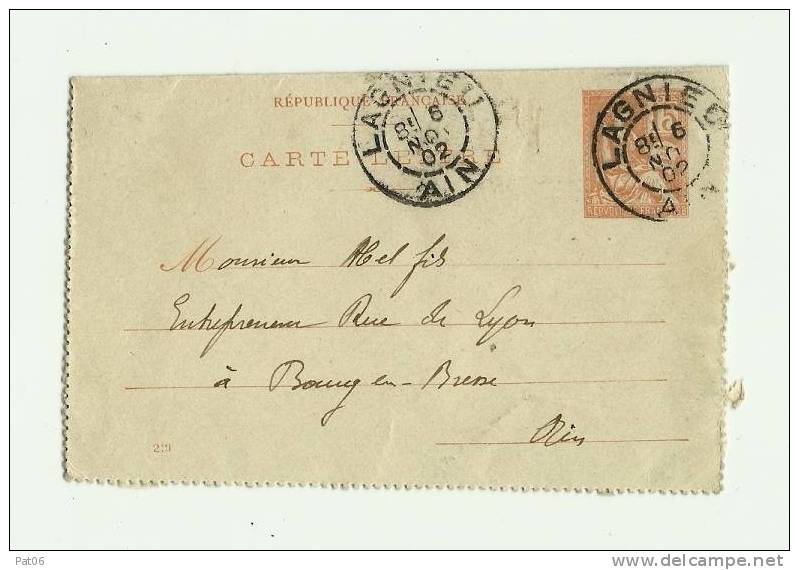 RÉPUBLIQUE FRANÇAISE
CARTE LETTRE
LAGNIEU
6
8E
02
AIN
LAGNIEU
6
8E
02
15
RÉPUBLIQUE FRANÇAISE
Monsieur Mel fils
Entrepreneur Rue de Lyon
à Bourg en-Bresse
Ain
213
Pat06
delcampe.net